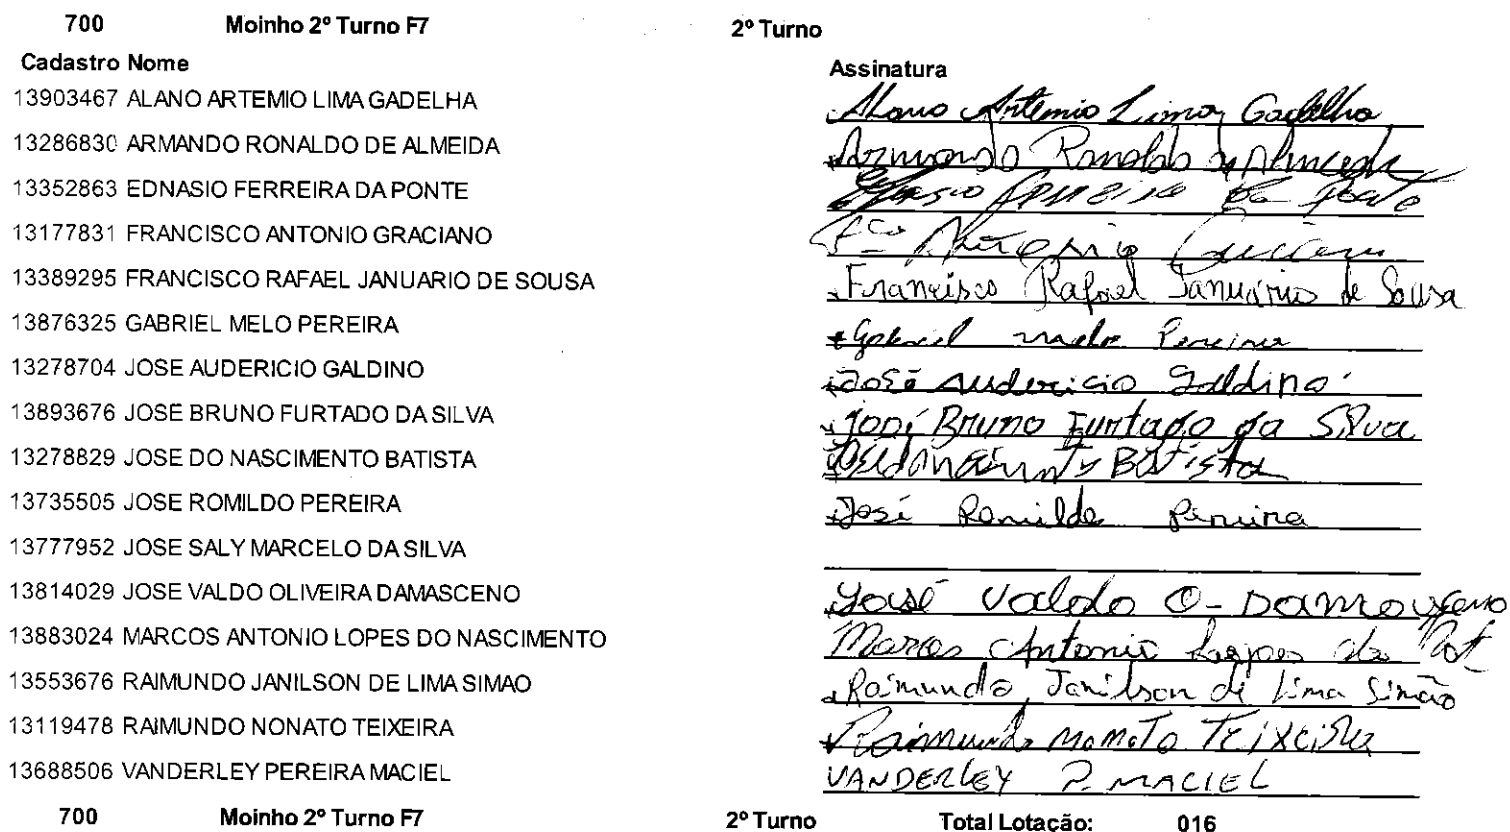 700 Moinho 2º Turno F7 2º Turno
Cadastro Nome Assinatura
13903467 ALANO ARTEMIO LIMA GADELHA Alano Artemio Lima Gadelha
13286830 ARMANDO RONALDO DE ALMEIDA Armando Ronaldo de Almeida
13352863 EDNASIO FERREIRA DA PONTE Ferreira da Ponte
13177831 FRANCISCO ANTONIO GRACIANO Fco Antonio
13389295 FRANCISCO RAFAEL JANUARIO DE SOUSA Francisco Rafael Januário de Sousa
13876325 GABRIEL MELO PEREIRA Gabriel melo Pereira
13278704 JOSE AUDERICIO GALDINO José Audericio Galdino
13893676 JOSE BRUNO FURTADO DA SILVA José Bruno Furtado da Silva
13278829 JOSE DO NASCIMENTO BATISTA Batista
13735505 JOSE ROMILDO PEREIRA José Romildo Pereira
13777952 JOSE SALY MARCELO DA SILVA
13814029 JOSE VALDO OLIVEIRA DAMASCENO José Valdo O- Damasceno
13883024 MARCOS ANTONIO LOPES DO NASCIMENTO Marcos Antonio Lopes do
13553676 RAIMUNDO JANILSON DE LIMA SIMAO Raimundo Janilson de Lima Simão
13119478 RAIMUNDO NONATO TEIXEIRA Raimundo Nonato Teixeira
13688506 VANDERLEY PEREIRA MACIEL VANDERLEY P. MACIEL
700 Moinho 2º Turno F7 2º Turno Total Lotação: 016